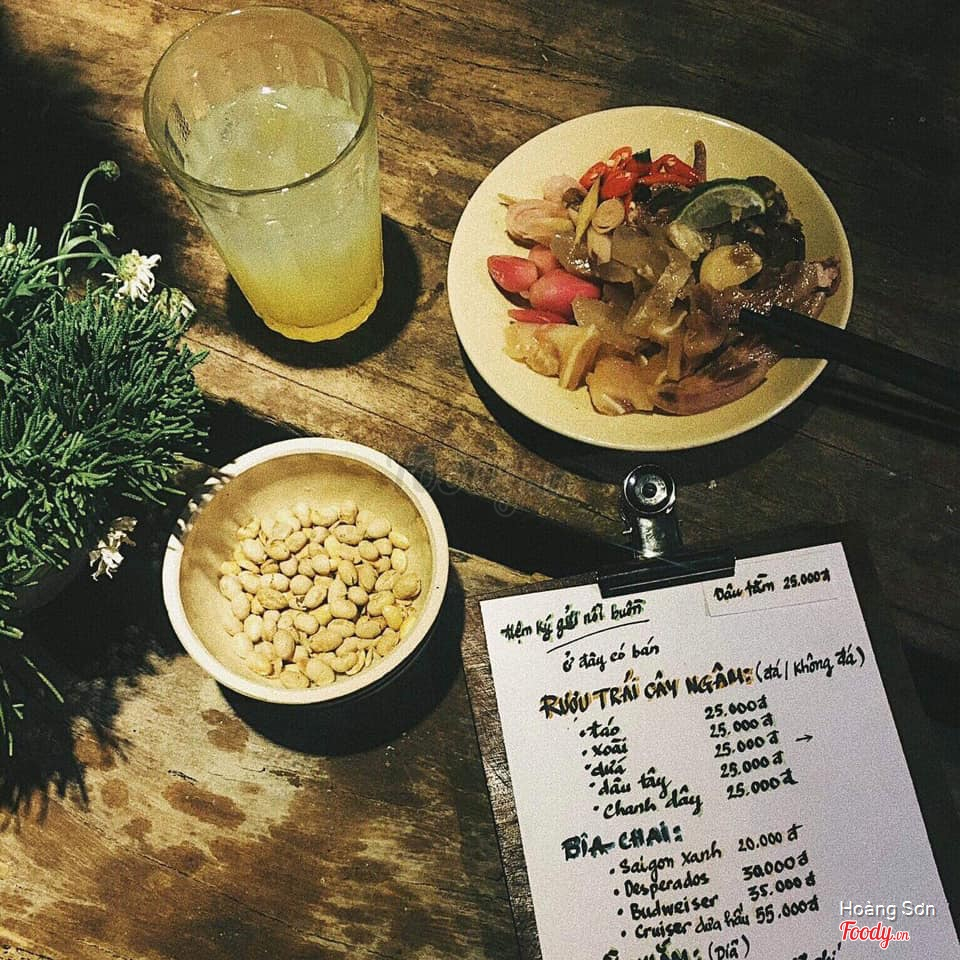 Dâu tằm 25.000đ
Hẻm ký gửi nỗi buồn
Ở đây có bán
RƯỢU TRÁI CÂY NGÂM: (đá / không đá)
• táo 25.000đ
• xoài 25.000đ
• dứa 25.000đ →
• dâu tây 25.000đ
• chanh dây 25.000đ
BIA CHAI:
• Saigon xanh 20.000đ
• Desperados 30.000đ
• Budweiser 35.000đ
• Cruiser dưa hấu 55.000đ
(Dĩa)
Hoảng Sơn
Foody.vn